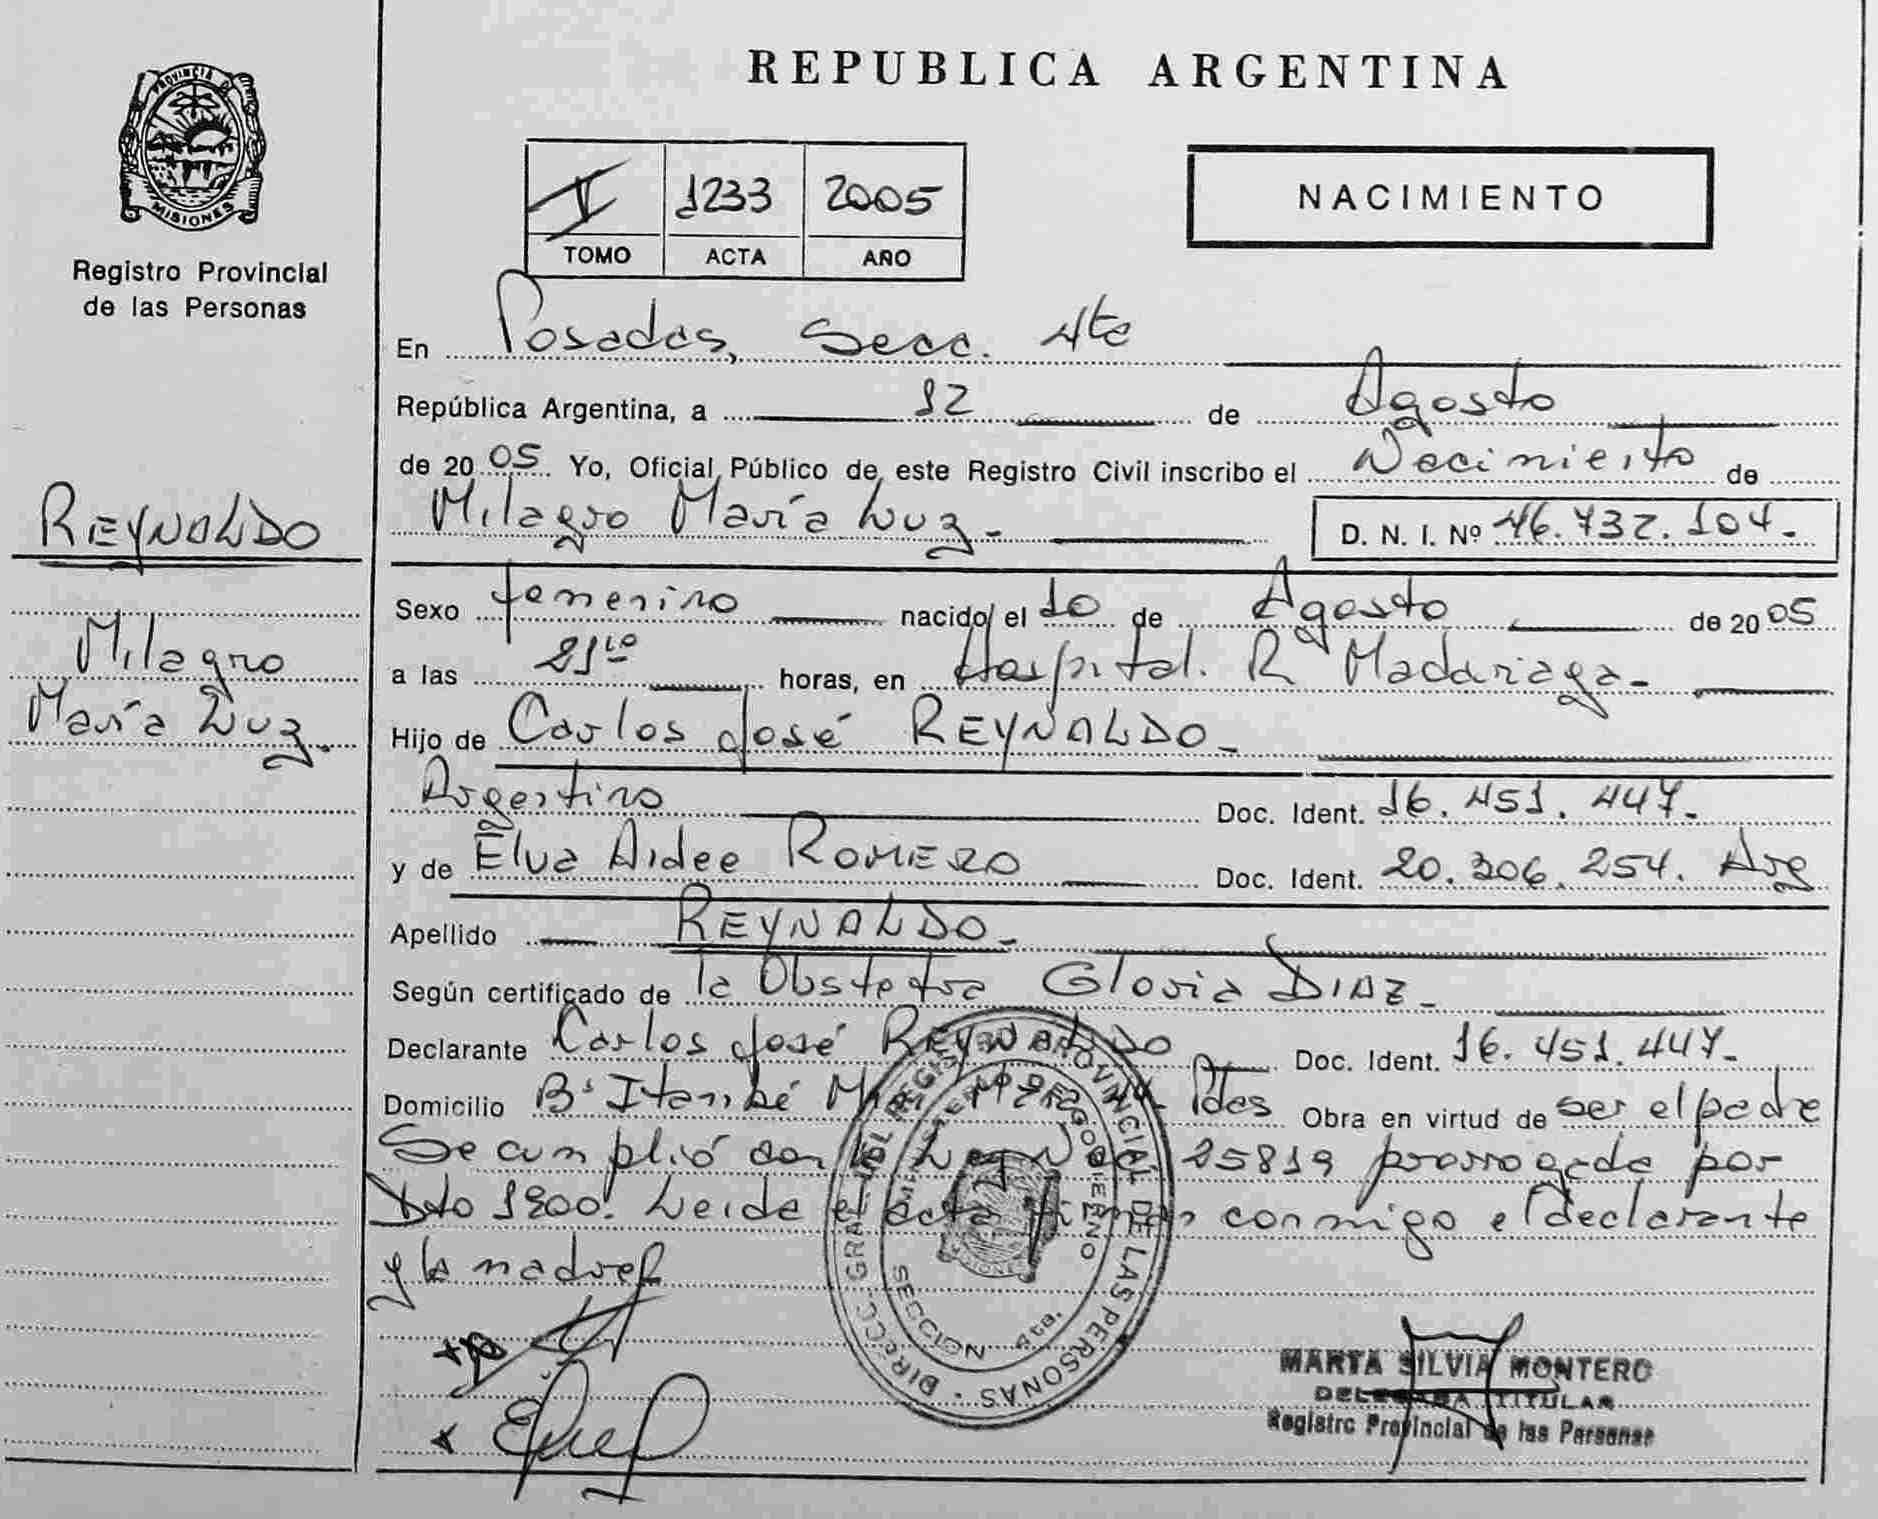 PROVINCIA DE
MISIONES
Registro Provincial
de las Personas
REYNALDO
Milagro
María Luz.
REPUBLICA ARGENTINA
V 1233 2005
TOMO ACTA AÑO
NACIMIENTO
En Posadas, Secc. 4ta
República Argentina, a 12 de Agosto
de 2005 Yo, Oficial Público de este Registro Civil inscribo el Nacimiento de
Milagro María Luz.- D. N. I. Nº 46.732.104.-
Sexo femenino nacido el 10 de Agosto de 2005
a las 21 10 horas, en Hospital. R Madariaga-
Hijo de Carlos José REYNALDO-
Argentino Doc. Ident. 16.451.447.-
y de Elva Aidee ROMERO Doc. Ident. 20.306.254. Arg
Apellido REYNALDO-
Según certificado de la Obstetra Gloria DIAZ-
Declarante Carlos José REYNALDO Doc. Ident. 16.451.447-
Domicilio Bº Itambé Pdas Obra en virtud de ser el padre
Se cumplió con la Ley 25819 prorrogada por
Dto 1900. Leida el acta firman conmigo el declarante
y la madre
DIRECC. GRAL. DEL REGISTRO PROVINCIAL DE LAS PERSONAS
MINISTERIO DE GOBIERNO
SECCION 4ta.
MARTA SILVIA MONTERO
DELEGADA TITULAR
Registro Provincial de las Personas